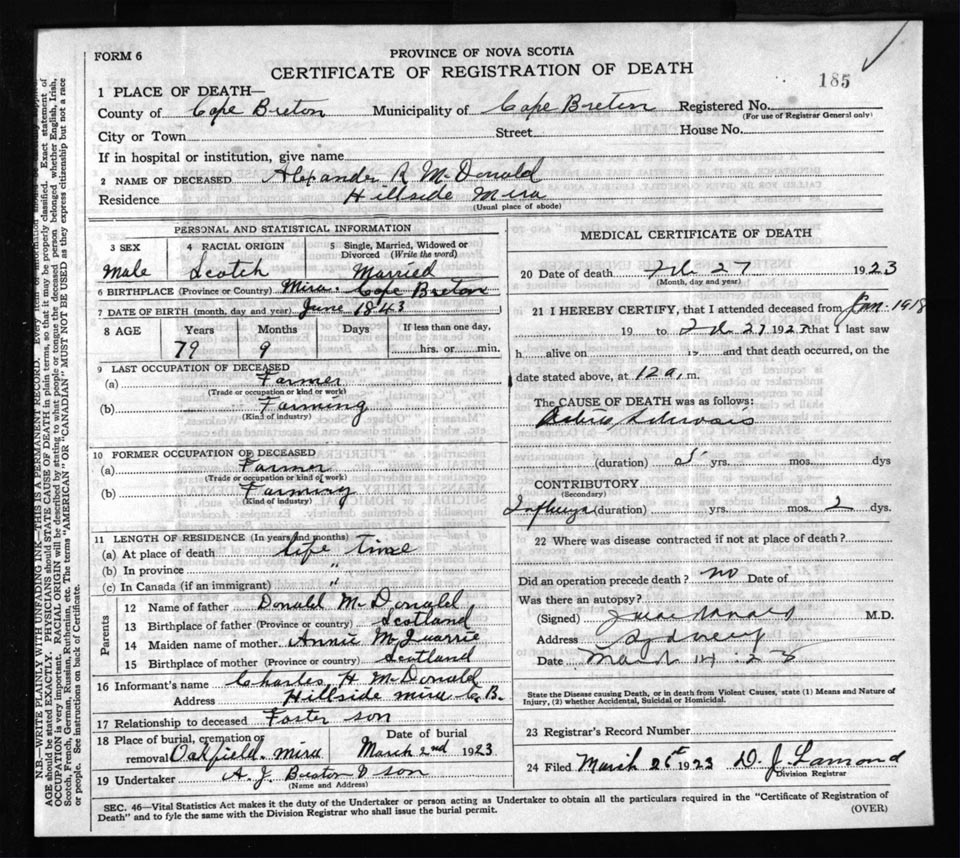 FORM 6
PROVINCE OF NOVA SCOTIA
CERTIFICATE OF REGISTRATION OF DEATH
185
1 PLACE OF DEATH—
County of Cape Breton Municipality of Cape Breton Registered No.
(For use of Registrar General only)
City or Town Street House No.
If in hospital or institution, give name
2 NAME OF DECEASED Alexander R McDonald
Residence Hillside Mira
(Usual place of abode)
PERSONAL AND STATISTICAL INFORMATION
3 SEX 4 RACIAL ORIGIN 5 Single, Married, Widowed or Divorced (Write the word)
Male Scotch Married
6 BIRTHPLACE (Province or Country) Mira Cape Breton
7 DATE OF BIRTH (month, day and year) June 1843
8 AGE Years Months Days If less than one day,
79 9 hrs. or min.
9 LAST OCCUPATION OF DECEASED
(a) Farmer
(Trade or occupation or kind or work)
(b) Farming
(Kind of industry)
10 FORMER OCCUPATION OF DECEASED
(a) Farmer
(Trade or occupation or kind of work)
(b) Farming
(Kind of industry)
11 LENGTH OF RESIDENCE (In years and months)
(a) At place of death life time
(b) In province "
(c) In Canada (if an immigrant) "
Parents
12 Name of father Donald McDonald
13 Birthplace of father (Province or country) Scotland
14 Maiden name of mother Annie McQuarrie
15 Birthplace of mother (Province or country) Scotland
16 Informant's name Charles H McDonald
Address Hillside Mira C.B.
17 Relationship to deceased Foster son
18 Place of burial, cremation or removal Oakfield, Mira Date of burial March 2nd 1923
19 Undertaker A. J. Beaton & son
(Name and Address)
MEDICAL CERTIFICATE OF DEATH
20 Date of death Feb 27 1923
(Month, day and year)
21 I HEREBY CERTIFY, that I attended deceased from Jan. 1918
19 to Feb 27 1923 that I last saw
h alive on 19 and that death occurred, on the
date stated above, at 12 a, m.
The CAUSE OF DEATH was as follows:
(duration) 5 yrs. mos. dys
CONTRIBUTORY
(Secondary)
(duration) yrs. mos. 2 dys.
22 Where was disease contracted if not at place of death?
Did an operation precede death? no Date of
Was there an autopsy?
(Signed) M.D.
Address Sydney
Date March 14
State the Disease causing Death, or in death from Violent Causes, state (1) Means and Nature of
Injury, (2) whether Accidental, Suicidal or Homicidal.
23 Registrar's Record Number
24 Filed March 26th 1923 D. J. Lamond
Division Registrar
SEC. 46—Vital Statistics Act makes it the duty of the Undertaker or person acting as Undertaker to obtain all the particulars required in the "Certificate of Registration of
Death" and to fyle the same with the Division Registrar who shall issue the burial permit.
(OVER)
N.B.—WRITE PLAINLY WITH UNFADING INK—THIS IS A PERMANENT RECORD. Every item of information
AGE should be stated EXACTLY. PHYSICIANS should STATE CAUSE OF DEATH in plain terms, so that it may be properly classified. Exact statement of
OCCUPATION is very important. RACIAL ORIGIN will be described by stating to what people or tongue the deceased person belonged whether English, Irish,
Scotch, French, German, Russian, Ruthenian, etc. The terms "AMERICAN" or "CANADIAN" MUST NOT BE USED as they express citizenship but not a race
or people. See instructions on back of Certificate.